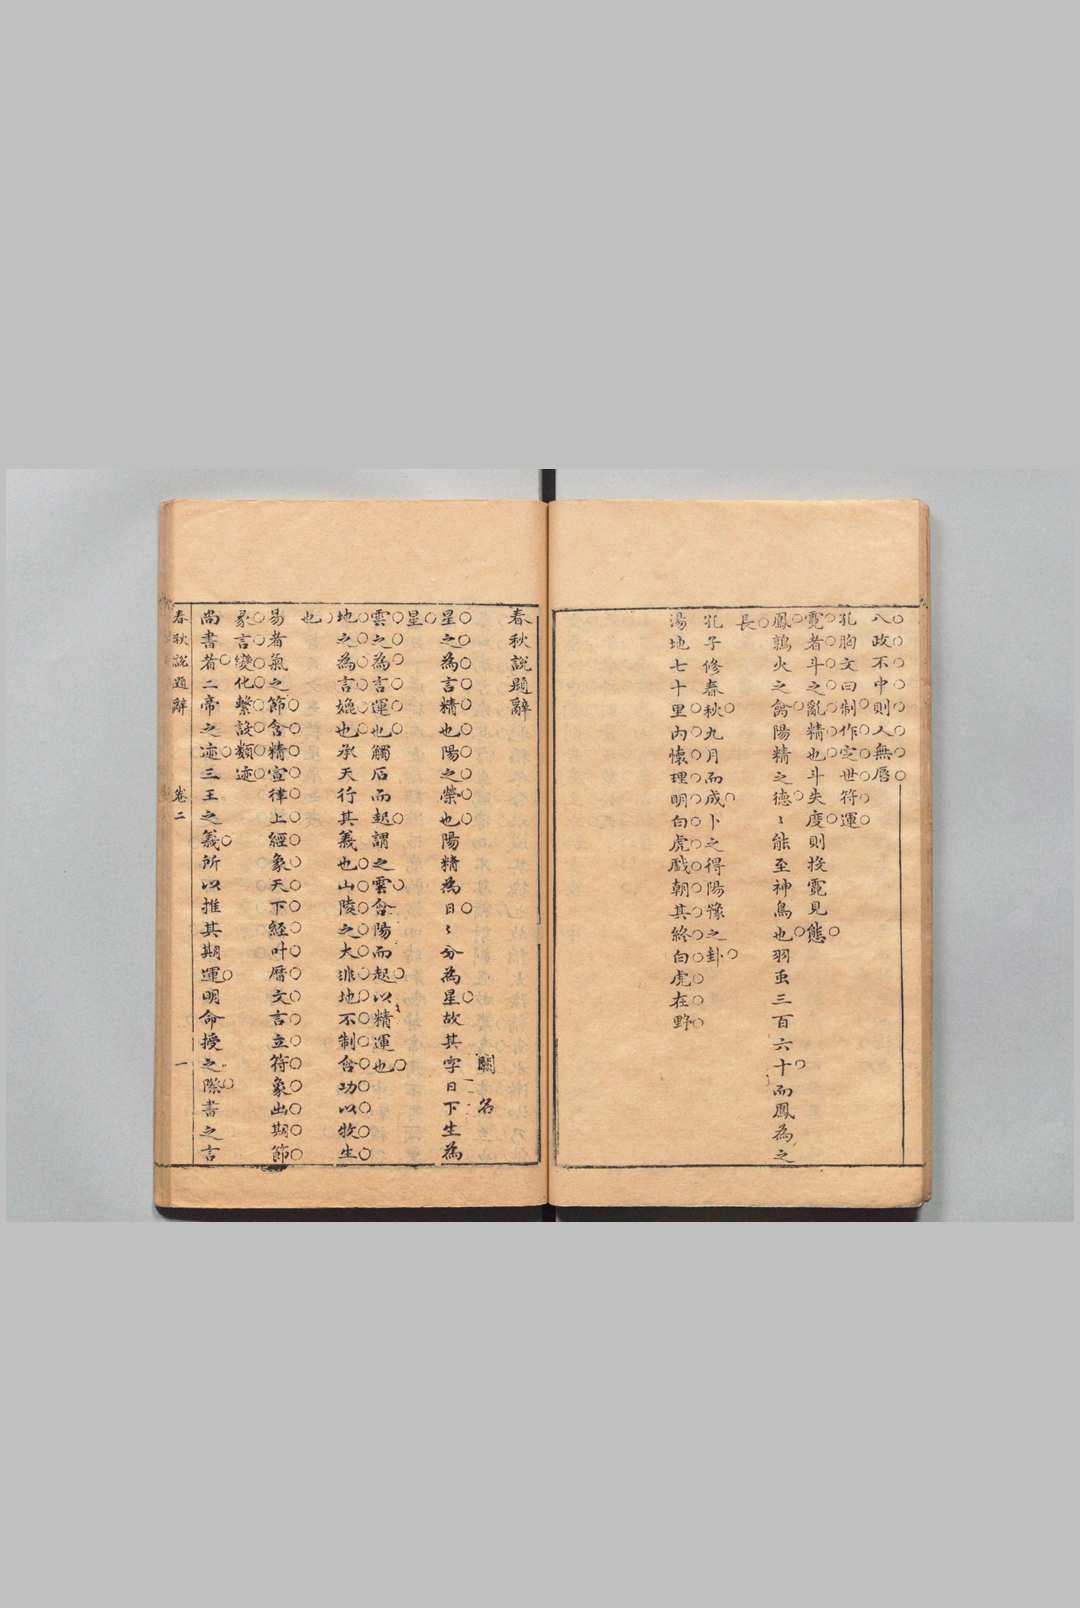 八政不中則人無脣
孔胸文曰制作定世符運
霓者斗之亂精也斗失度則投霓見態
鳳鶉火之禽陽精之德〻能至神鳥也羽䖝三百六十而鳳為之
長
孔子修春秋九月而成卜之得陽豫之卦
湯地七十里內懷理明白虎戲朝其終白虎在野
春秋說題辭
闕名
星之為言精也陽之榮也陽精為日〻分為星故其字日下生為
星
雲之為言運也觸石而起謂之雲含陽而起以精運也
地之為言媲也承天行其義也山陵之大非地不制含功以牧生
也
易者氣之節含精宣律上經象天下經叶曆文言立符象出期節
彖言變化繫設類迹
尚書者二帝之迹三王之義所以推其期運明命授之際書之言
春秋說題辭 卷二 一